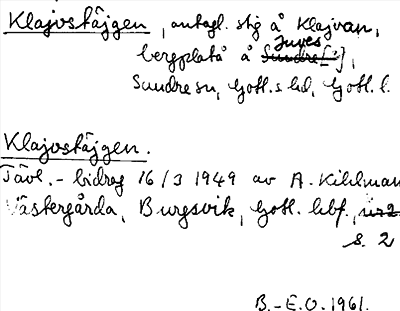 Klajvstäjgen, antagl. stig å Klajvan,
Juves
bergplatå å Sundre [?],
Sundre sn, Gotl. s hd, Gotl. l.
Klajvstäjgen.
Tävl.-bidrag 16/3 1949 av A. Kihlman
Västergårda, Burgsvik, Gotl. lbf.,
s. 2
B.-E.O. 1961.